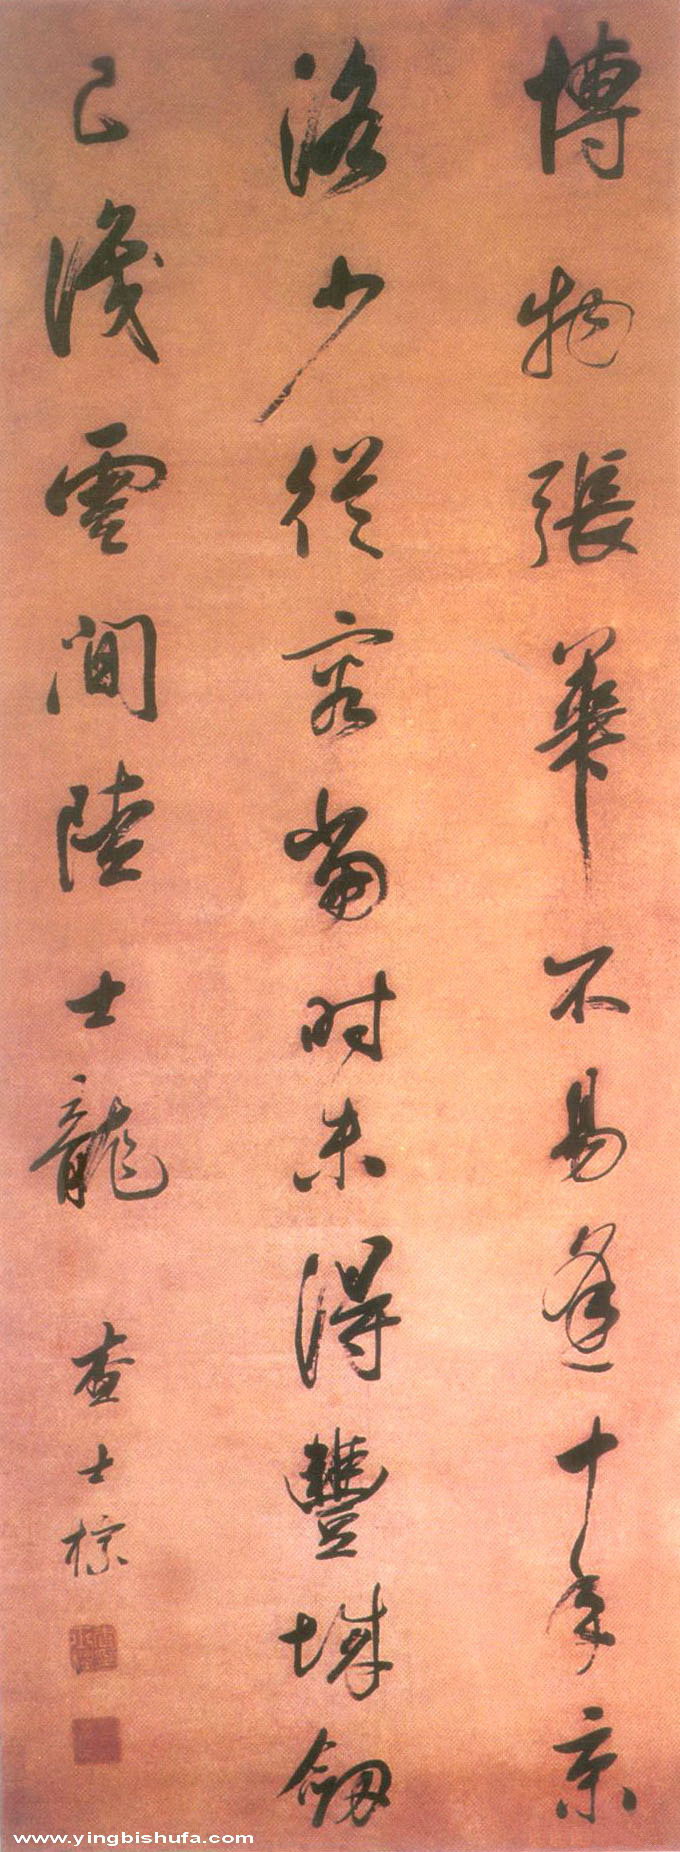 博物張華不易逢十年京
洛少從容當時未得豐城劔
已識雲間陸士龍
查士標
www.yingbishufa.com